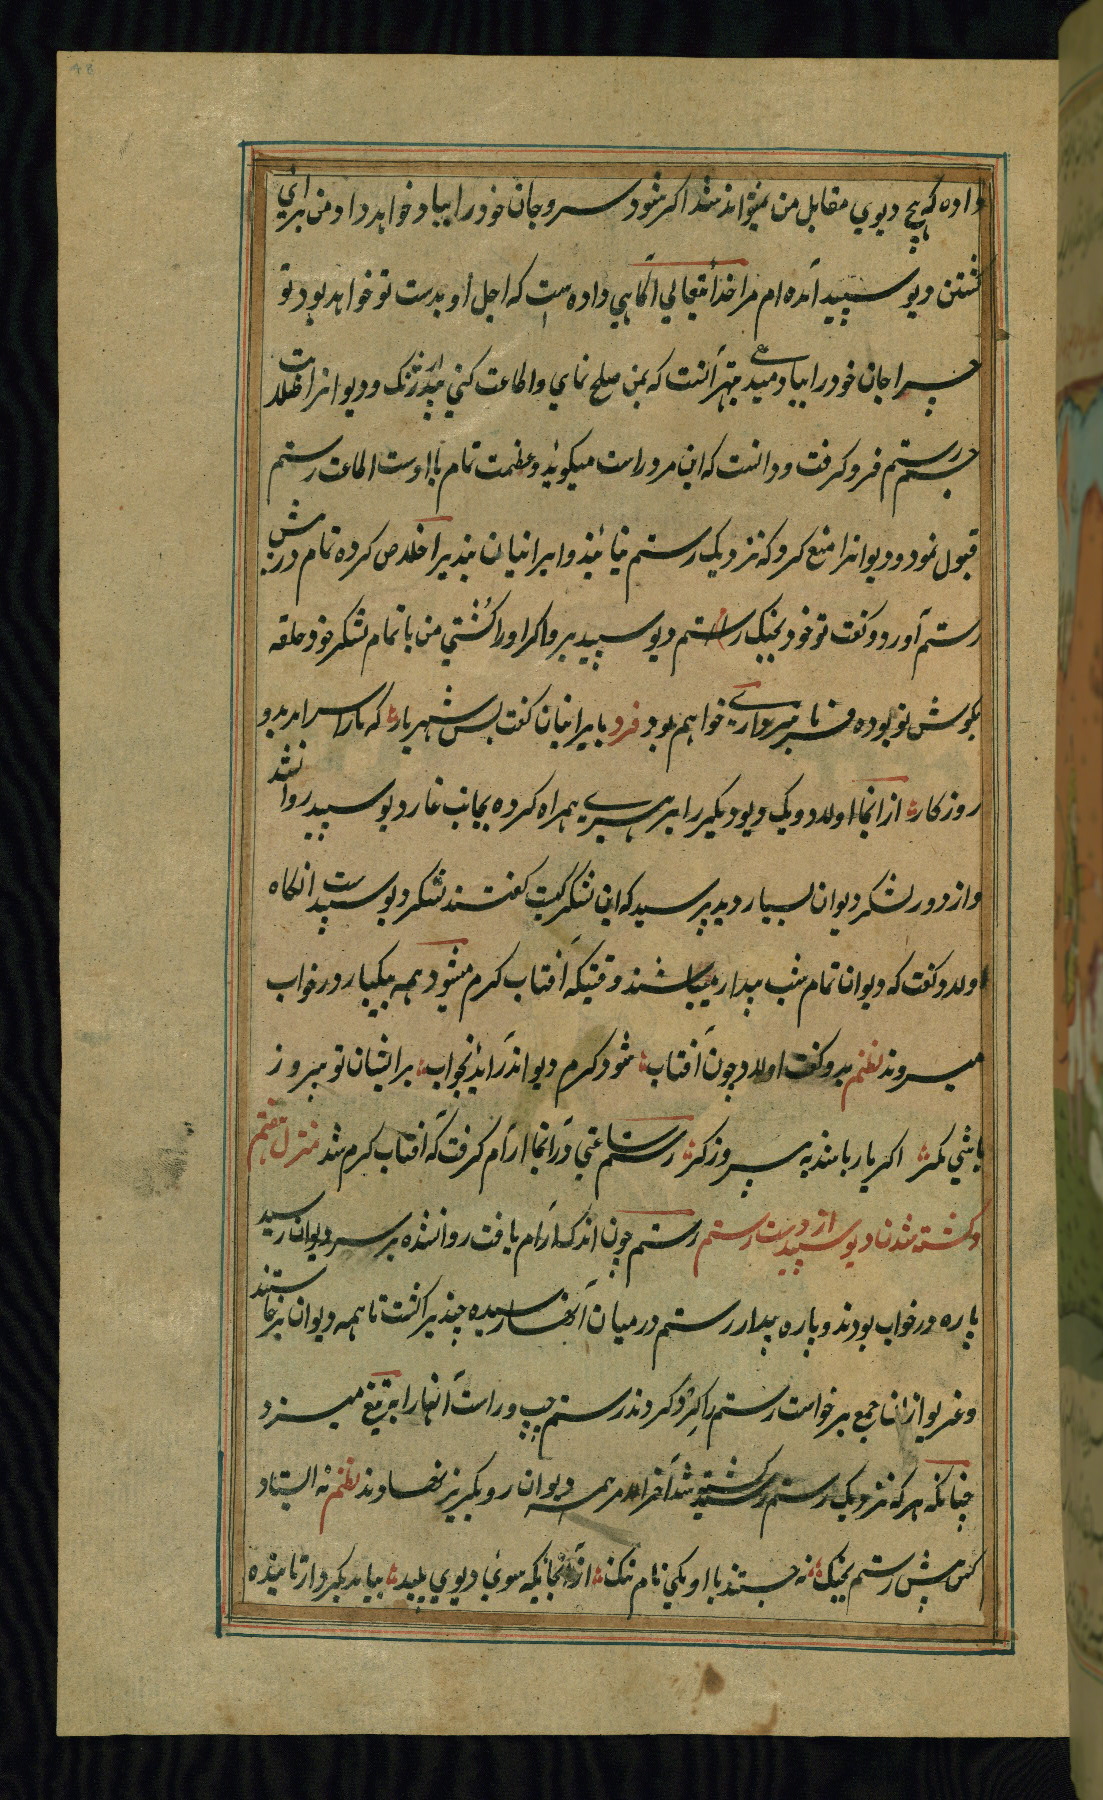 داده که هیچ دیوی مقابل من نمیتواند شد اکر شود سر و جان خود را بباد خواهد داد و من برای
کشتن دیو سپید آمده ام مرا خدا تعالی آکاهی داده است که اجل او بدست تو خواهد بود تو
چرا جان خود را بباد میدهی بهتر آنست که بمن صلح نمای و اطاعت کنی
رستم فرو کرفت و دانست که این مرد راست میکوید و عظمت تمام با اوست اطاعت رستم
قبول نمود و دیوانرا منع کرد که نزدیک رستم نیایند و ایرانیان بندیرا خلاص کرده تمام در پیش
رستم آورد و کفت تو خود بجنک دیو سپید برو اکر او را کشتی من با تمام لشکر خود حلقه
بکوش تو بوده فرمانبرداری خواهم بود فرد بایرانیان کفت پس شهریار که ما را سرآمد بد
روزکار از آنجا اولاد و یک دیو دیکر را برهبری همراه کرده بجانب غار دیو سپید روانشد
و از دور لشکر دیوان بسیار دید پرسید که این لشکر کیست کفتند لشکر دیو سپید است آنکاه
اولاد کفت که دیوان تمام شب بیدار میباشند وقتیکه آفتاب کرم میشود همه یکبار در خواب
میروند نظم بدو کفت اولاد چون آفتاب شود کرم دیو اندر آید بخواب بر ایشان تو پیروز
باشی مکر اکر یار باشد پیروزکر رستم ساعتی در آنجا آرام کرفت که آفتاب کرم شد منزل هفتم
و کشته شدن دیو سپید از دست رستم رستم چون اندک آرام یافت روانشده بر سر دیوان رسید
پاره در خواب بودند و پاره بیدار رستم در میان آنها رسیده چند برا کشت تا همه دیوان برخاستند
و غریو از آن جمع برخواست رستم را کرد کردند رستم چپ و راست آنها را بتیغ میزد
چنانکه هر که نزدیک رستم رسید کشته شد آخرالامر همه دیوان رو بکریز نهادند نظم نه ایستاد
کس پیش رستم بجنک نه جستند با او یکی نام و ننک از آنجایکه سوی دیوی پلید بیامد بکردار تابنده